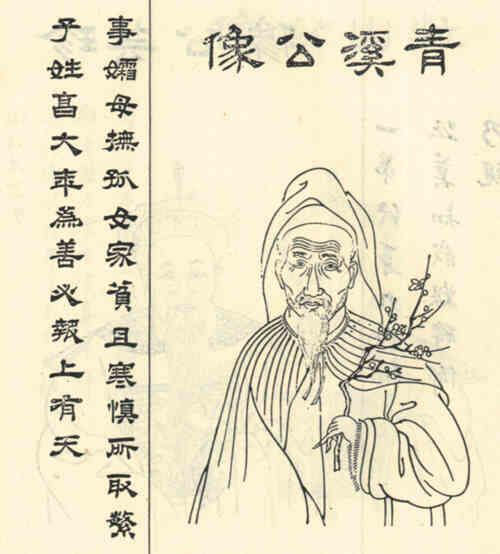 青溪公像
事孀母撫孤女家貧且寒慎所取繁
子姓高大年為善必報上有天